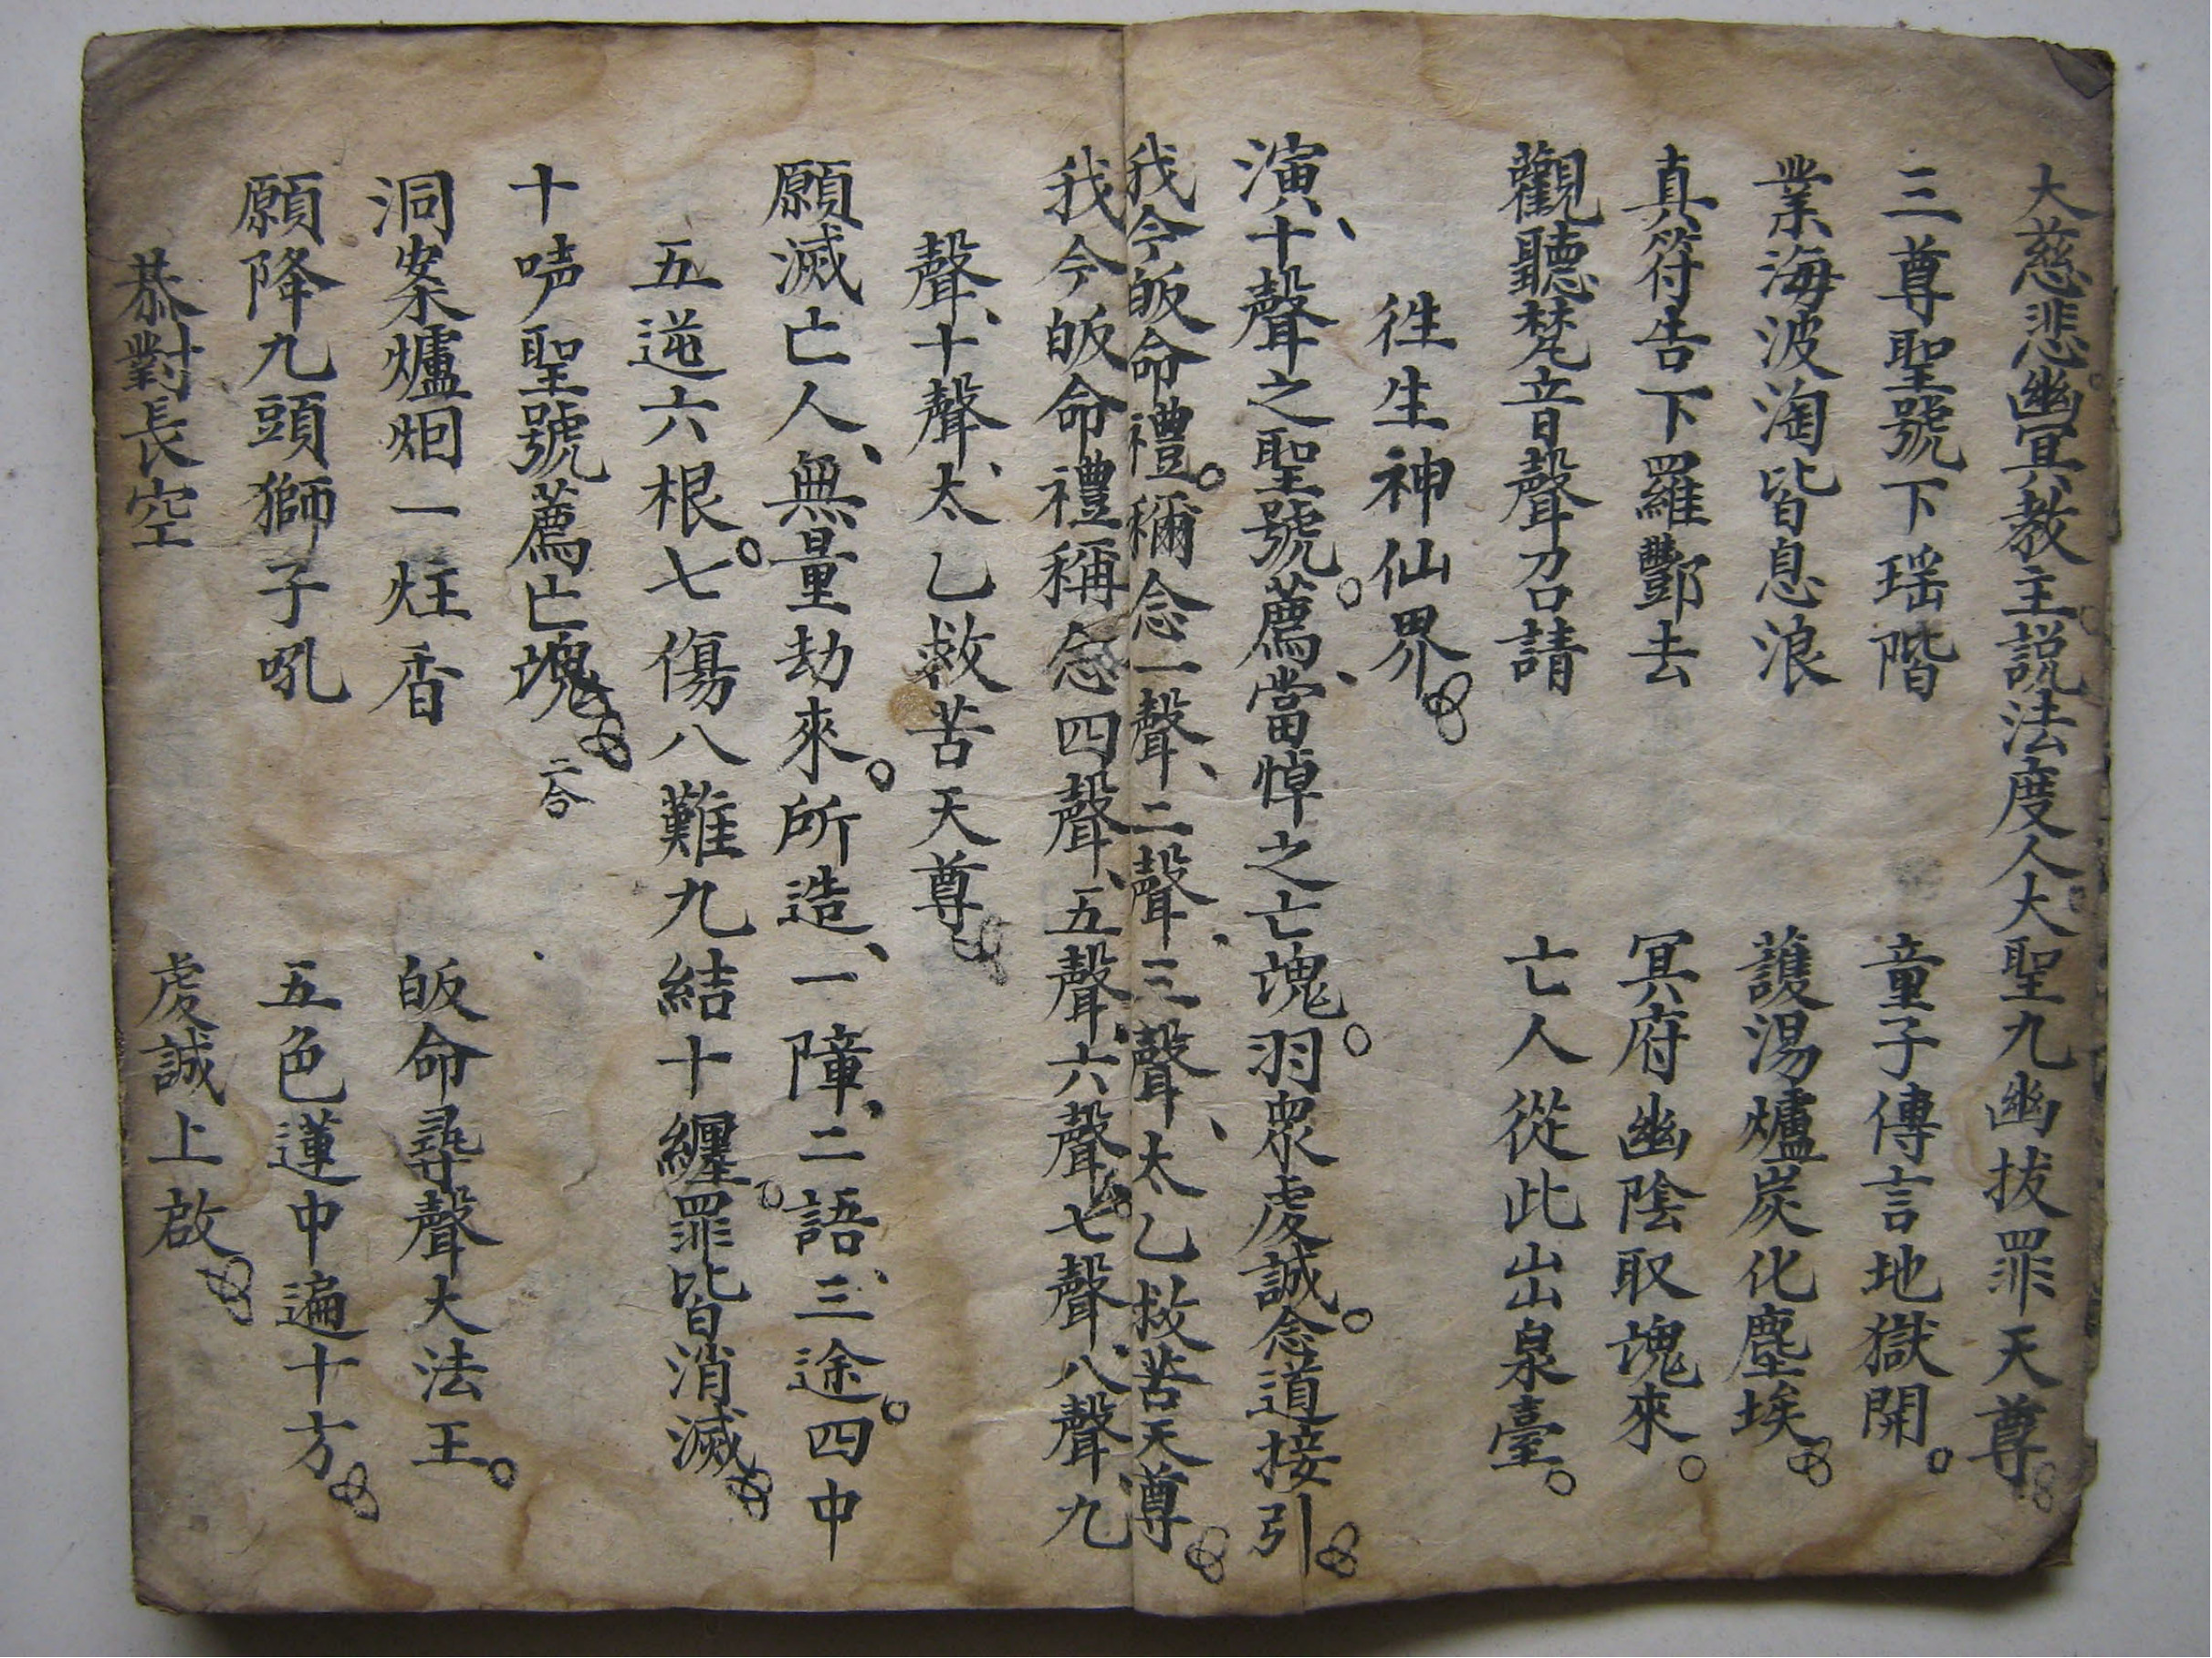 大慈悲幽冥教主説法度人大聖九幽拔罪天尊
三尊聖號下瑶階 童子傳言地獄開
業海波淘皆息浪 護湯爐炭化塵埃
真符告下羅酆去 冥府幽陰取魂來
觀聽梵音聲召請 亡人從此出泉臺
徃生神仙界
演十聲之聖號薦當悼之亡魂羽眾虔誠念道接引
我今皈命禮稱念一聲二聲三聲太乙救苦天尊
我今皈命禮稱念四聲五聲六聲七聲八聲九
聲十聲太乙救苦天尊
願滅亡人無量劫來所造一障二語三途四中
五逆六根七傷八難九結十纏罪皆消滅
十声聖號薦亡魂 二合
洞案爐焑一炷香 皈命尋聲大法王
願降九頭獅子吼 五色蓮中遍十方
恭對長空 虔誠上啟